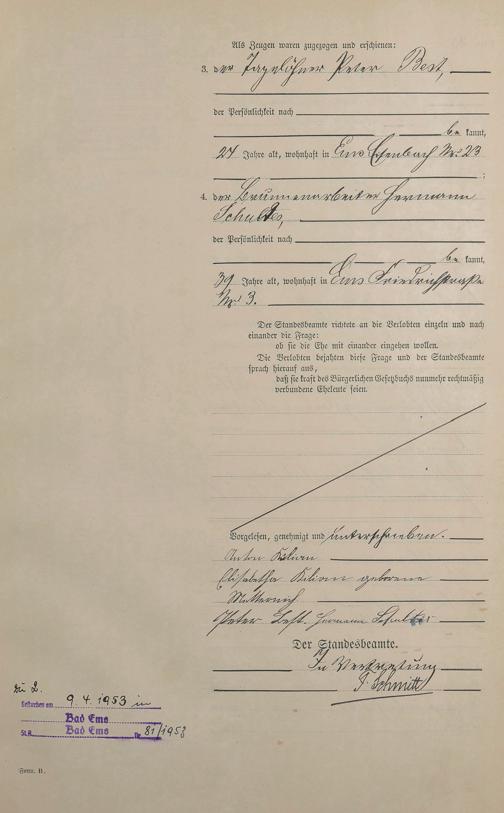 Als Zeugen waren zugezogen und erschienen:
3. der Tagelöhner Peter Best,
der Persönlichkeit nach
be kannt,
24 Jahre alt, wohnhaft in Ems Eisenbach Nr. 23
;
4. der Brunnenarbeiter Hermann
Schultes,
der Persönlichkeit nach
be kannt,
39 Jahre alt, wohnhaft in Ems Friedrichstraße
Nr. 3.
Der Standesbeamte richtete an die Verlobten einzeln und nach
einander die Frage:
ob sie die Ehe mit einander eingehen wollen.
Die Verlobten bejahten diese Frage und der Standesbeamte
sprach hierauf aus,
daß sie kraft des Bürgerlichen Gesetzbuchs nunmehr rechtmäßig
verbundene Eheleute seien.
Vorgelesen, genehmigt und unterschrieben.
Anton Kilian
Elisabetha Kilian geborene
Metternich
Peter Best. Hermann Schultes
Der Standesbeamte.
In Vertretung
F. Schmitt
zu 2.
Gestorben am 9.4.1953 in
Bad Ems
St.A. Bad Ems Nr 81/1953
Form. B.